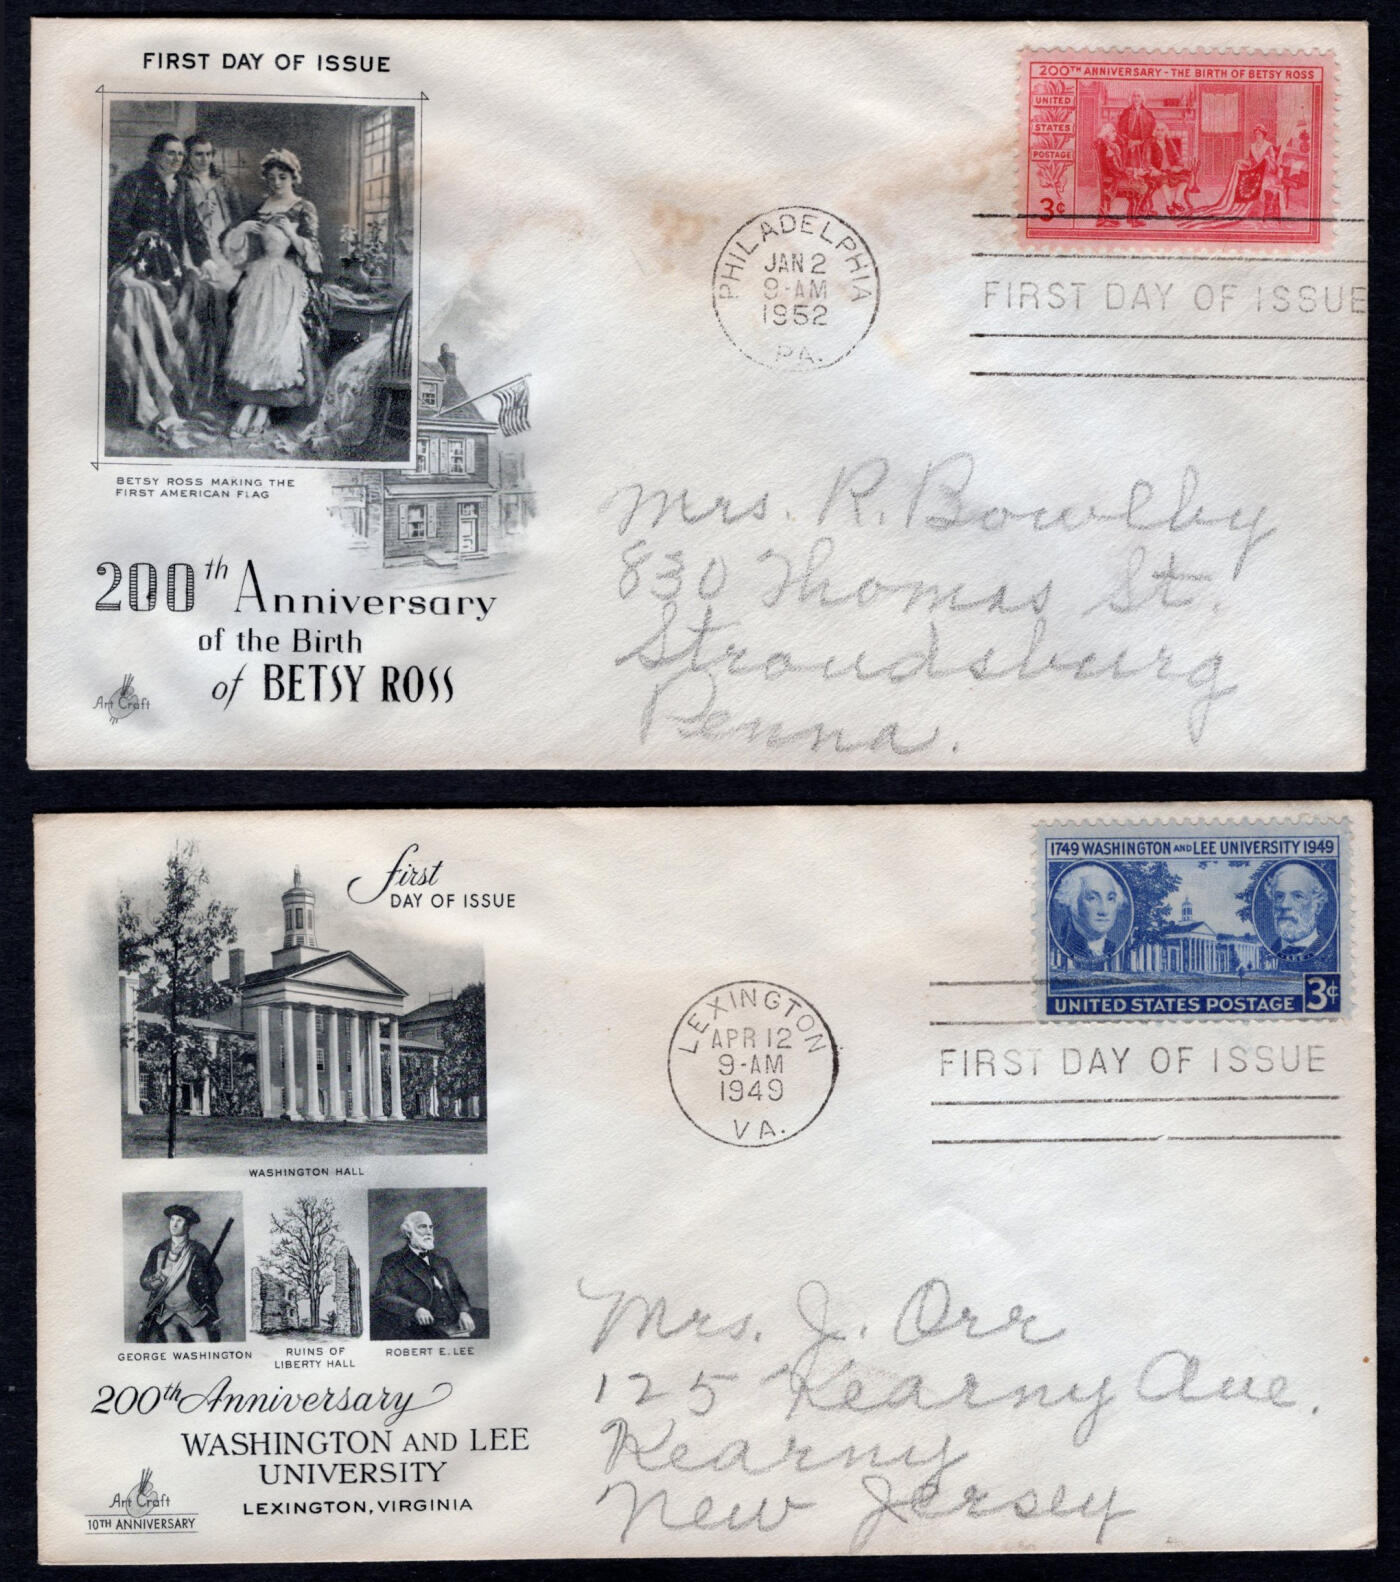 FIRST DAY OF ISSUE
BETSY ROSS MAKING THE
FIRST AMERICAN FLAG
200th Anniversary
of the Birth
of BETSY ROSS
Art Craft
200TH ANNIVERSARY - THE BIRTH OF BETSY ROSS
UNITED
STATES
POSTAGE
3¢
PHILADELPHIA
JAN 2
9-AM
1952
PA.
FIRST DAY OF ISSUE
Mrs. R. Bowlby
830 Thomas St.
Stroudsburg
Penna.
First
DAY OF ISSUE
WASHINGTON HALL
GEORGE WASHINGTON
RUINS OF
LIBERTY HALL
ROBERT E. LEE
200th Anniversary
WASHINGTON AND LEE
UNIVERSITY
LEXINGTON, VIRGINIA
Art Craft
10TH ANNIVERSARY
1749 WASHINGTON AND LEE UNIVERSITY 1949
UNITED STATES POSTAGE 3¢
LEXINGTON
APR 12
9-AM
1949
VA.
FIRST DAY OF ISSUE
Mrs. J. Orr
125 Kearny Ave.
Kearny
New Jersey